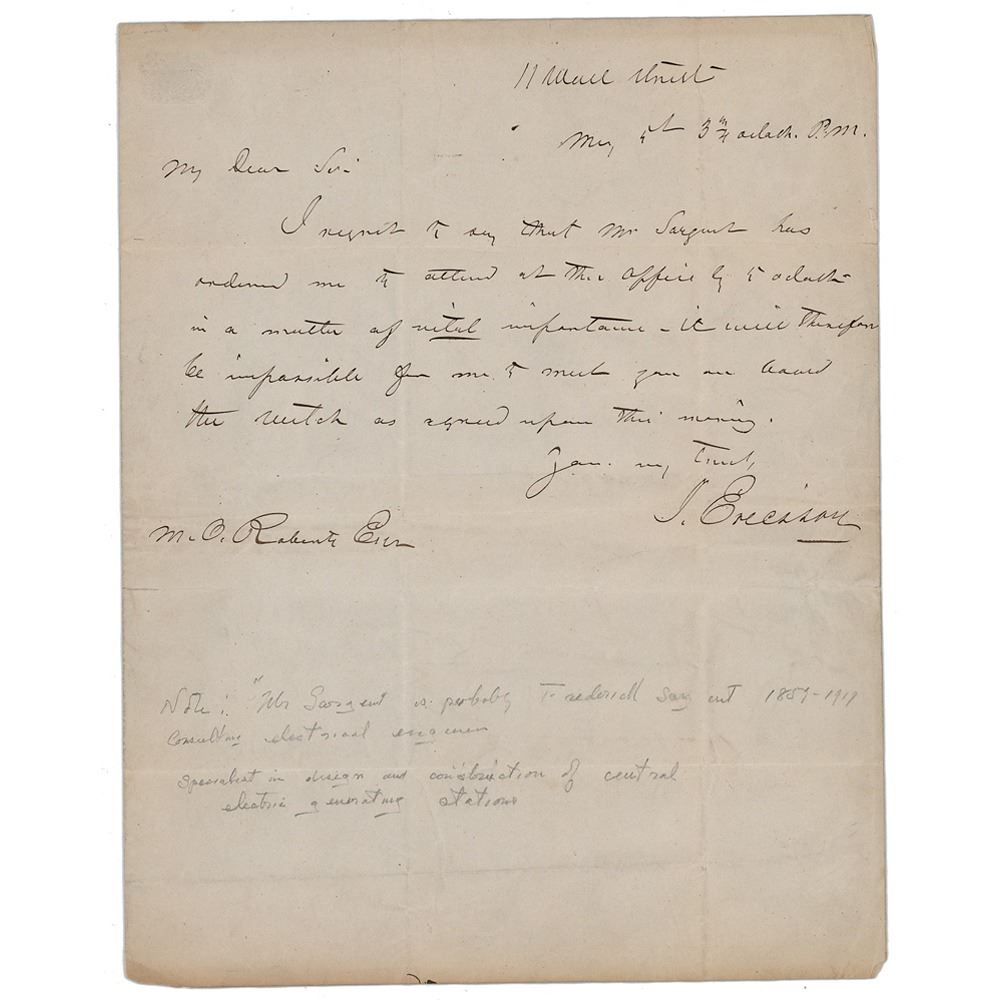 11 Wall Street
May 3 3/4 oclock. P.M.
My Dear Sir
I regret to say that Mr Sargent has
ordered me to attend at the office by 5 oclock
in a matter of vital importance - it will therefore
be impossible for me to meet you on board
the as agreed upon this morning.
Your. Truly,
J. Ericsson
M. O. Roberts Esqr
Note: "Mr Sargent is probably Frederick Sargent 1859-1919
Consulting electrical engineer
Specialist in design and construction of central
electric generating stations